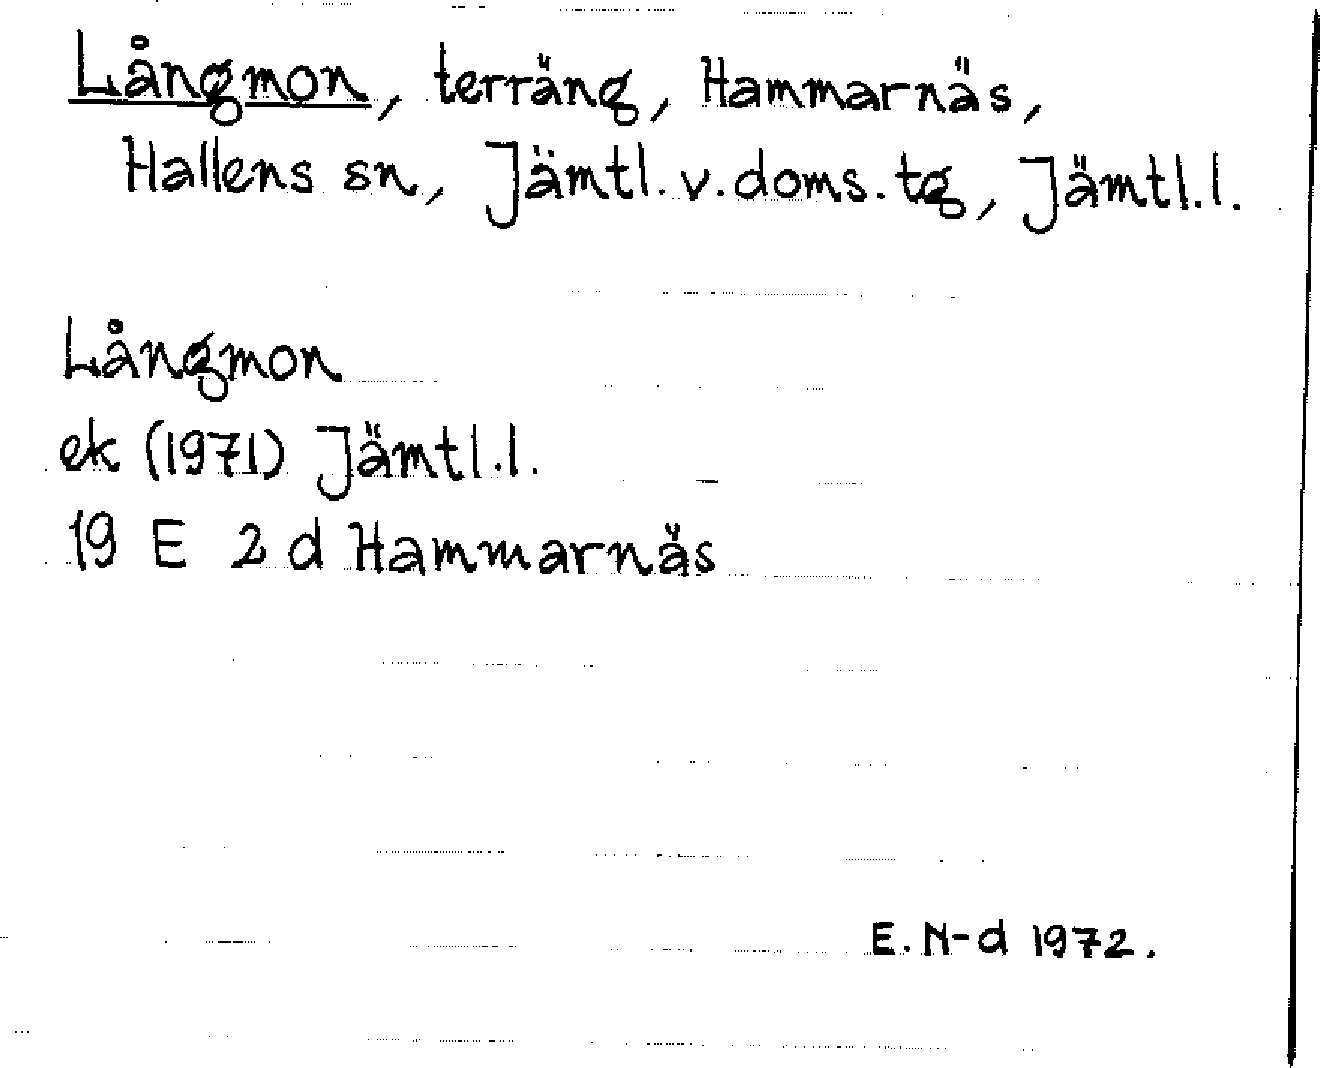 Långmon, terräng, Hammarnäs,
Hallens sn, Jämtl. v. doms. tg, Jämtl.l.
Långmon
ek (1971) Jämtl.l.
19 E 2 d Hammarnäs
E. N-d 1972.